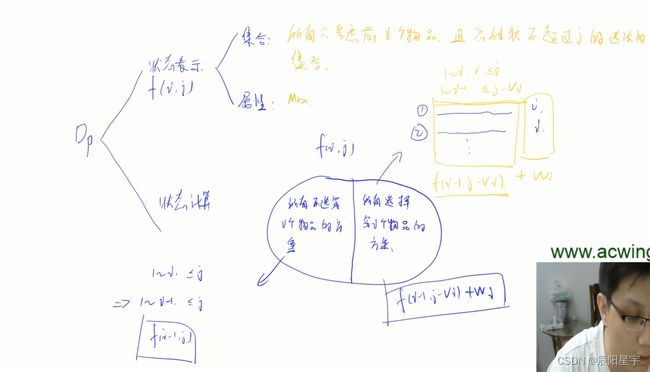 Dp
状态表示
f(i,j)
集合: 所有只考虑前i个物品,且总体积不超过j的选法的
集合.
属性: Max
状态计算
f(i,j)
所有不选第
i个物品的方
案
所有选择
第i个物品的
方案.
1~i, ≤j
=> 1~i-1, ≤j
f(i-1,j)
1~i, i ≤j
1~i-1, ≤j-Vi
①
②
⋮
f(i-1,j-Vi) + Wi
f(i-1,j-Vi)+Wi
www.acwing
CSDN @辰阳星宇